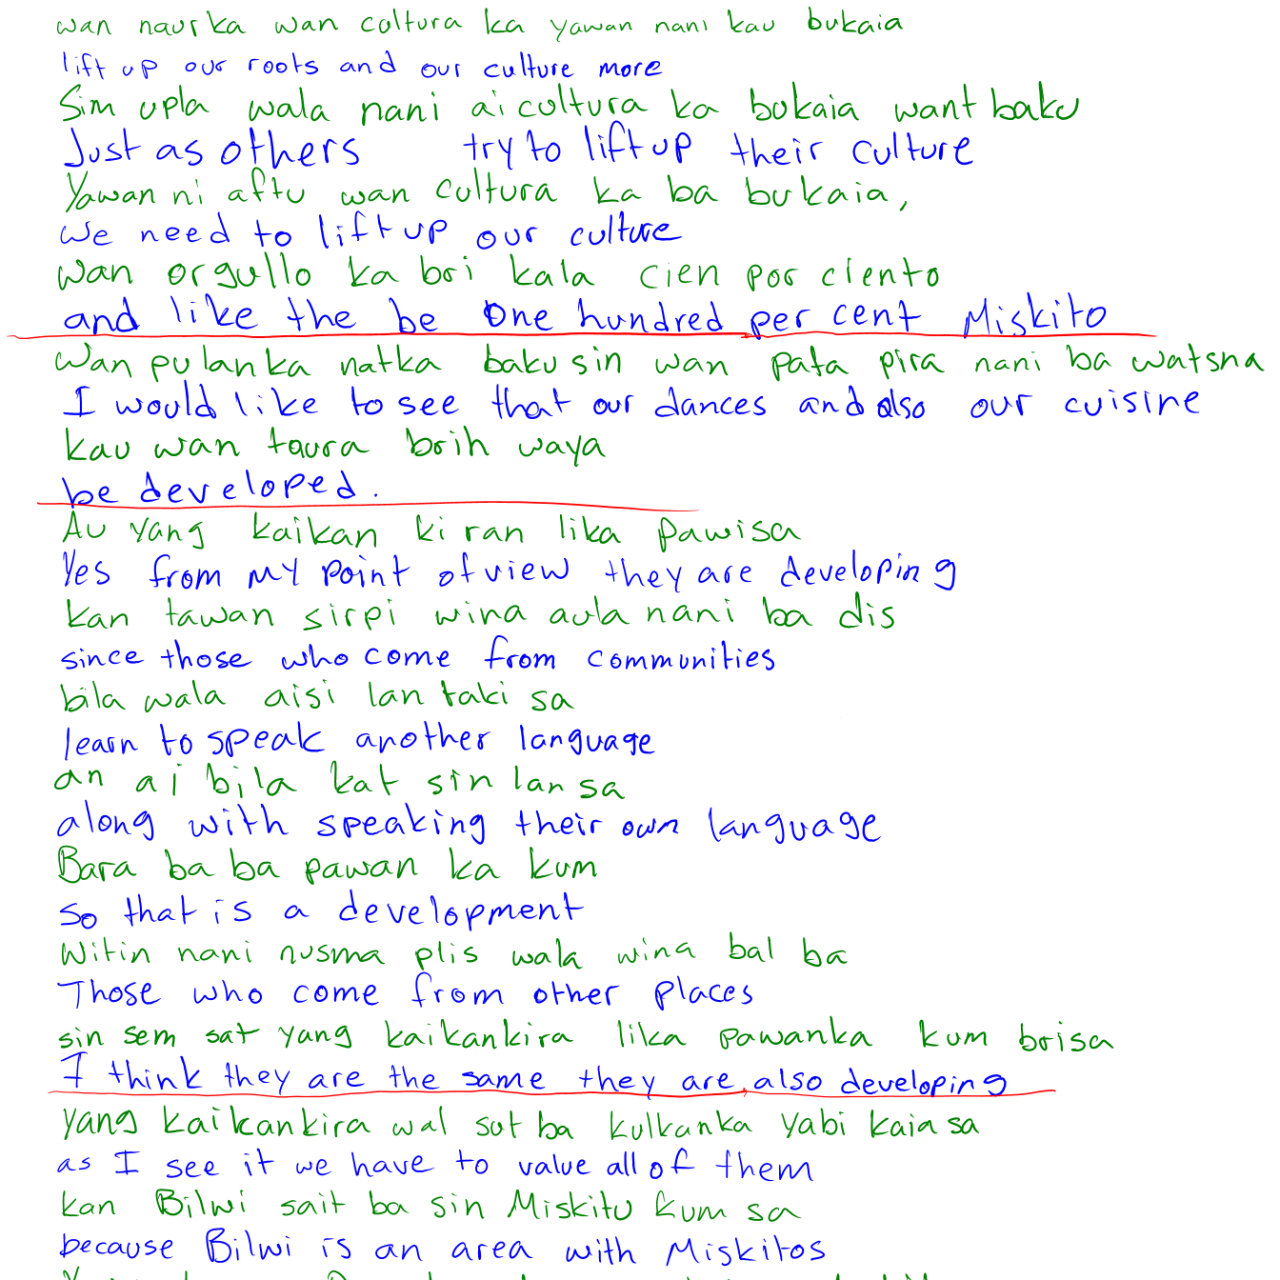 wan naurka wan cultura ka yawan nani kau bukaia
lift up our roots and our culture more
Sim upla wala nani ai cultura ka bukaia want baku
Just as others try to lift up their culture
Yawan ni aftu wan cultura ka ba bukaia,
We need to lift up our culture
Wan orgullo ka bri kala cien por ciento
and like the be One hundred per cent Miskito
Wan pulanka natka baku sin wan pata pira nani ba watsna
I would like to see that our dances and also our cuisine
kau wan taura brih waya
be developed.
Au yang kaikan ki ran lika pawisa
Yes from my point of view they are developing
kan tawan sirpi wina aula nani ba dis
since those who come from communities
bila wala aisi lan taki sa
learn to speak another language
an ai bila kat sin lan sa
along with speaking their own language
Bara ba ba pawan ka kum
So that is a development
Witin nani nusma plis wala wina bal ba
Those who come from other places
sin sem sat yang kaikankira lika pawanka kum brisa
I think they are the same they are also developing
yang kaikankira wal sut ba kulkanka yabi kaia sa
as I see it we have to value all of them
kan Bilwi sait ba sin Miskitu kum sa
because Bilwi is an area with Miskitos